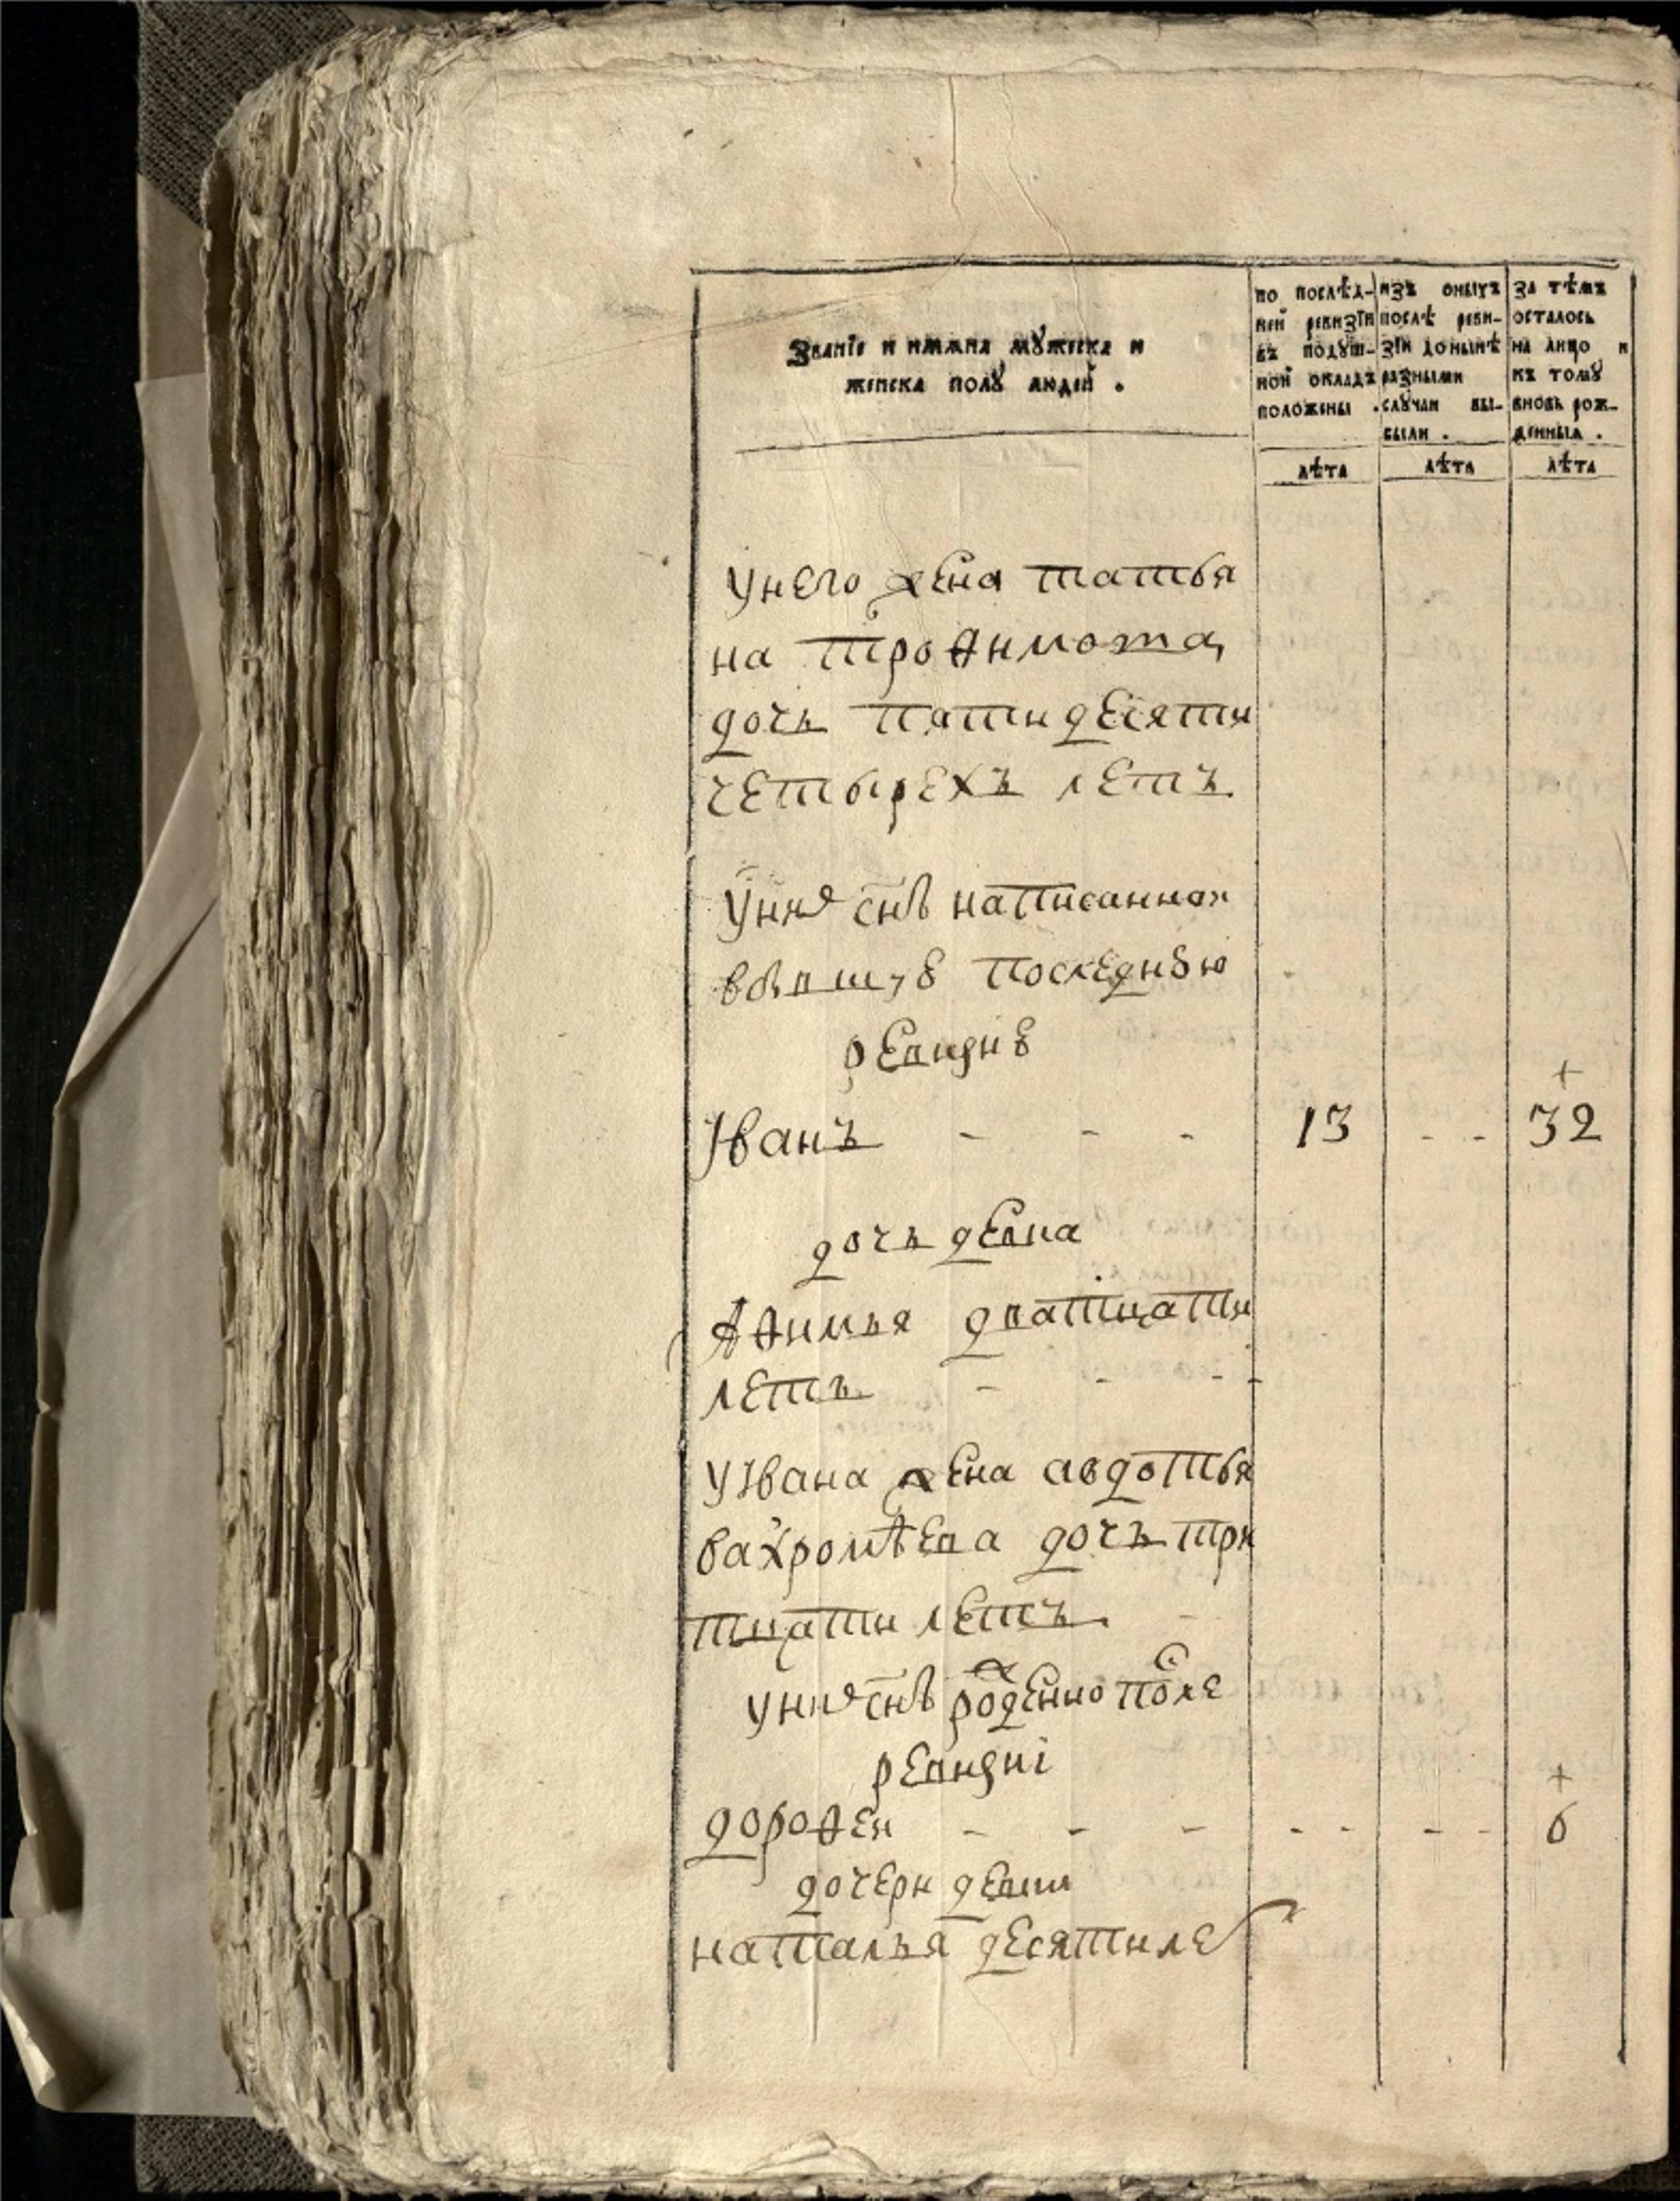 Званїе и имяна мꙋжеска и
женска полꙋ людей .
по послѣд-
ней ревизїи
въ подꙋш-
ной окладъ
положены .
изъ оныхъ
послѣ реви-
зїи донынѣ
разными
слꙋчаи вы-
были .
за тѣмъ
осталось
на лицо и
къ томꙋ
вновь рож-
денныя .
лѣта лѣта лѣта
унего жена татья
на троѳимова
дочь пятидесяти
четырехъ летъ
униⷯ сн҃ъ написанноⷨ
вбывшꙋю последнꙋю
ревизиꙋ
Iванъ - - - 13 - - 32
дочь девка
Аѳимья дватцати
летъ - - - -
уIвана жена авдотья
вахромѣева дочь три
тцати летъ -
униⷯ сн҃ъ роⷤденно поⷭле
ревизиї
дороѳеи - - - - - - - 6
дочери девки
наталья десятилеⷮ